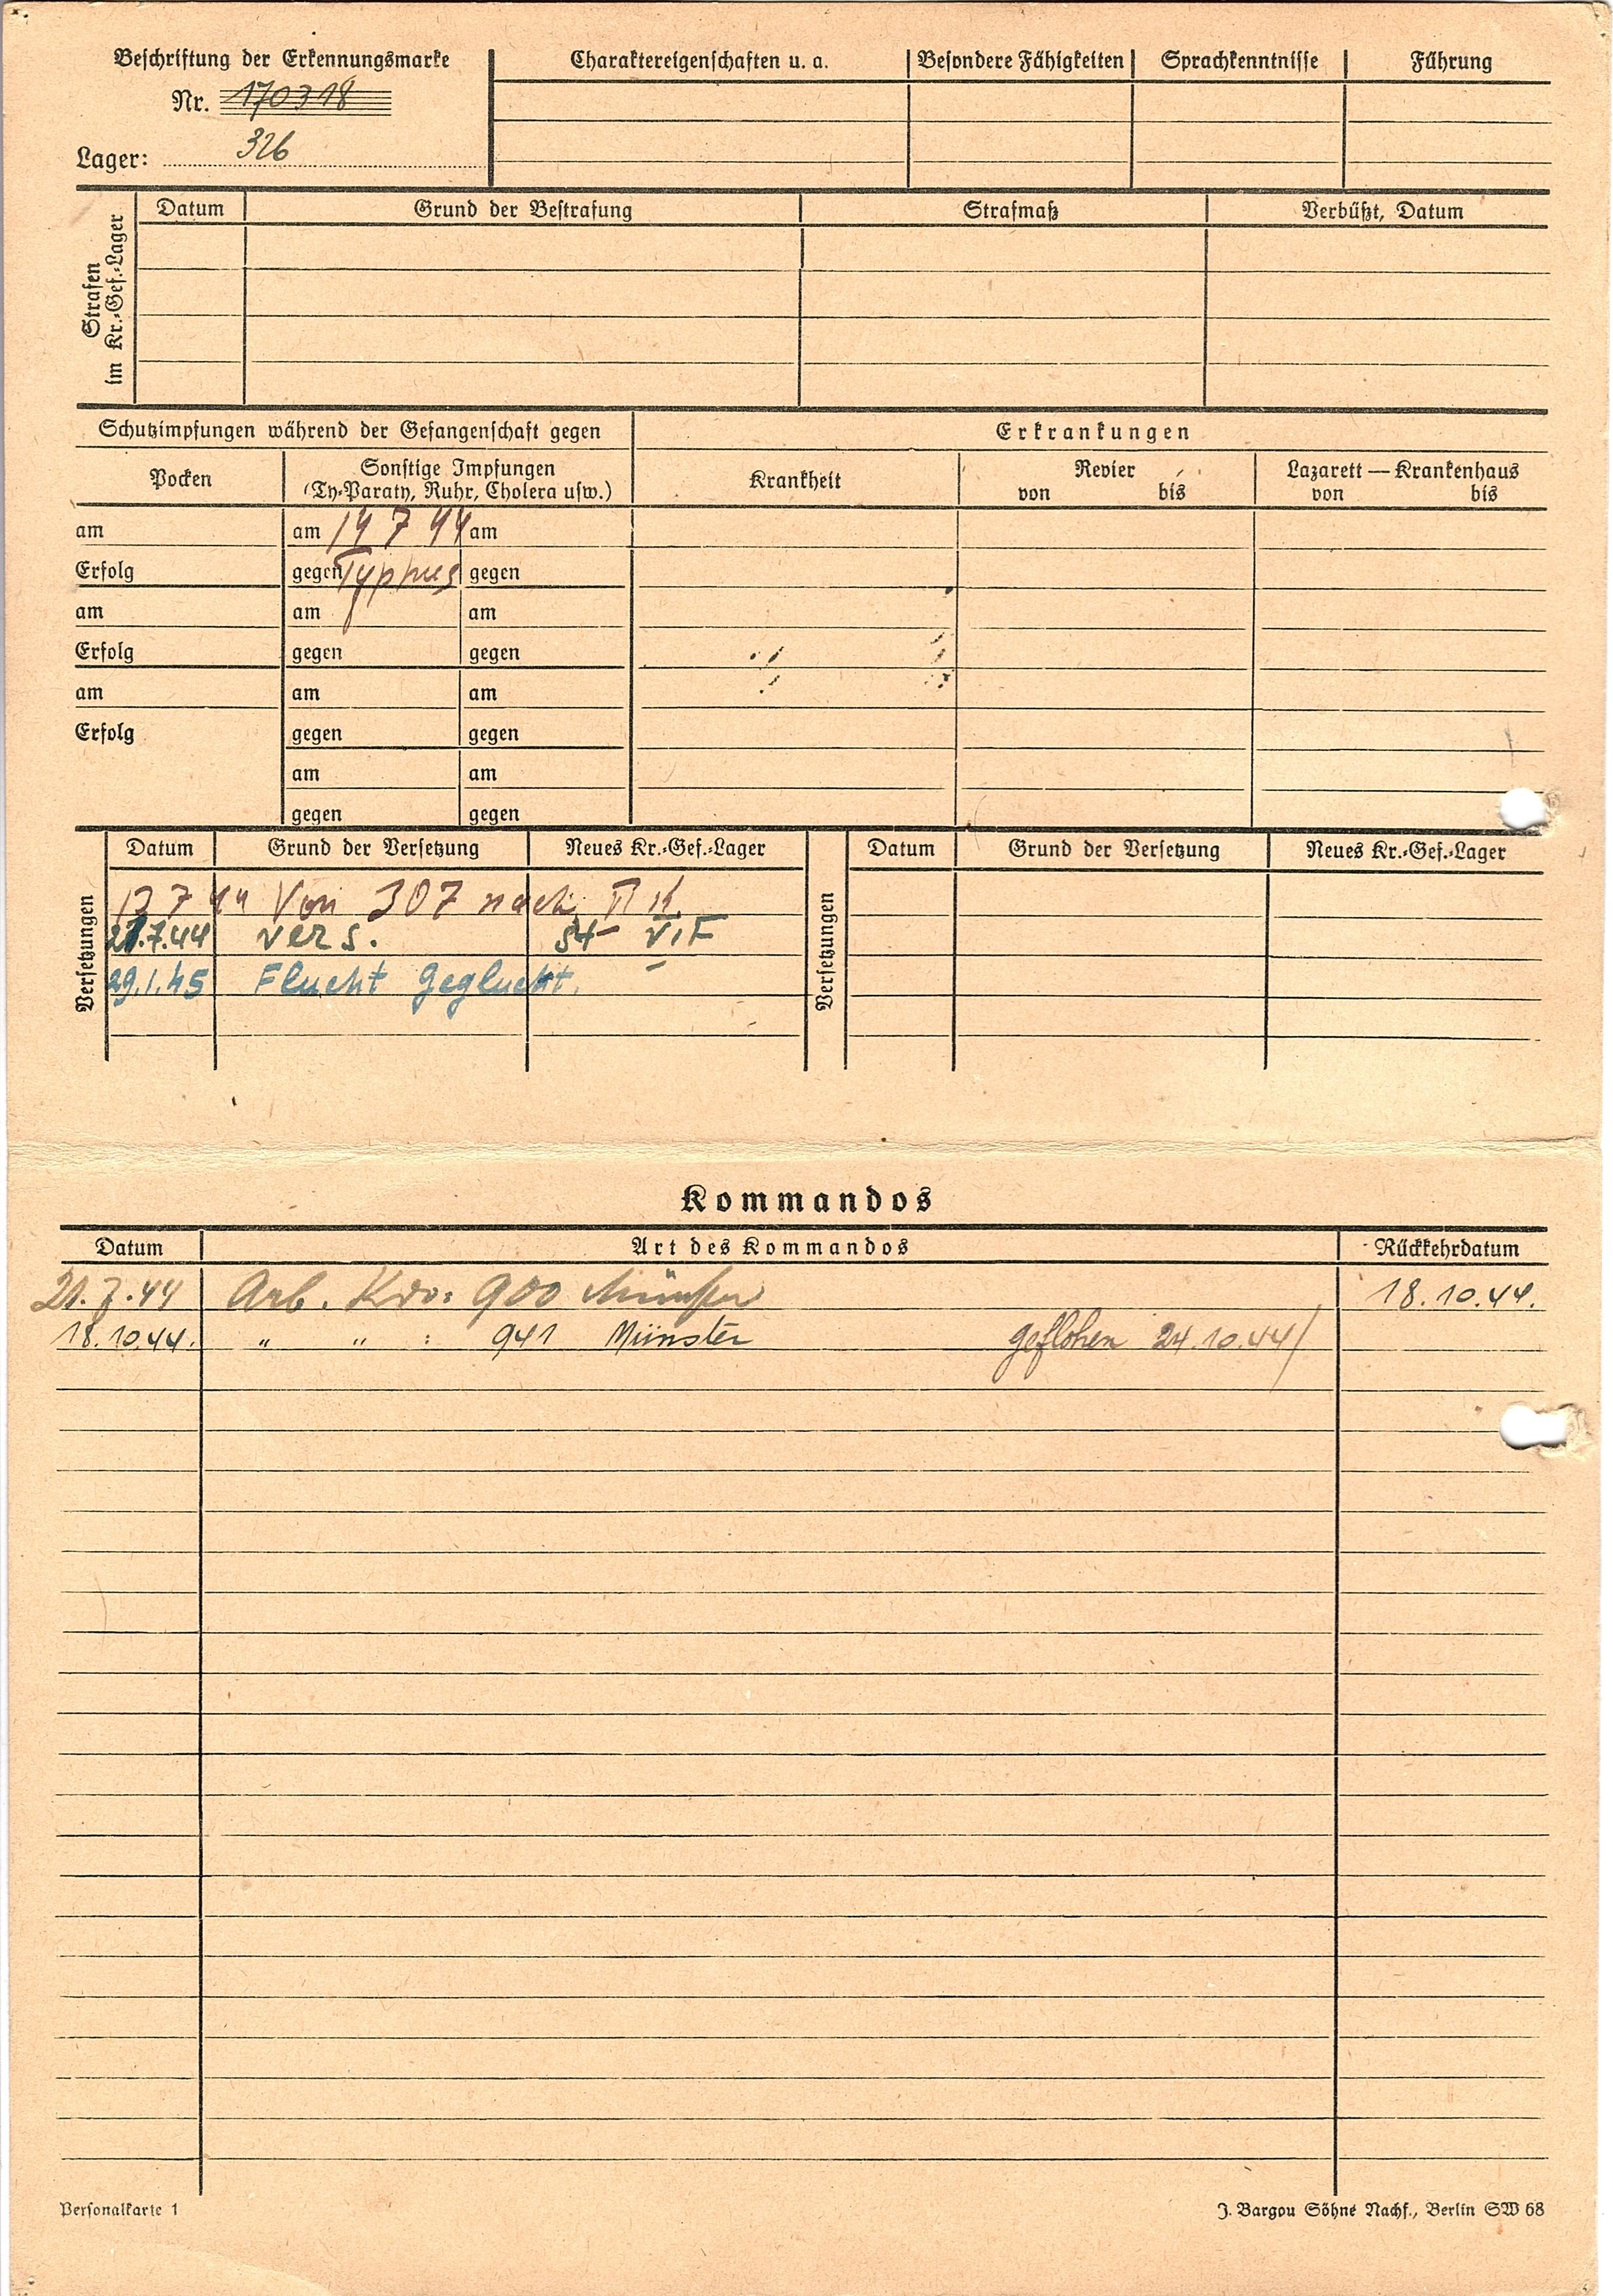 Beschriftung der Erkennungsmarke
Nr. 170318
Lager: 326
Charaktereigenschaften u. a. Besondere Fähigkeiten Sprachkenntnisse Führung
Strafen im Kr.-Gef.-Lager
Datum Grund der Bestrafung Strafmaß Verbüßt, Datum
Schutzimpfungen während der Gefangenschaft gegen
Erkrankungen
Pocken
Sonstige Impfungen
(Ty-Paraty, Ruhr, Cholera usw.)
Krankheit
Revier
von bis
Lazarett — Krankenhaus
von bis
am am 14 7 44 am
Erfolg gegen Typhus gegen
am am am
Erfolg gegen gegen
am am am
Erfolg gegen gegen
am am
gegen gegen
Versetzungen
Datum Grund der Versetzung Neues Kr.-Gef.-Lager
13 7 44 Von 307 nach
21.7.44 vers. St VIF
29.1.45 Flucht Geglückt.
Versetzungen
Datum Grund der Versetzung Neues Kr.-Gef.-Lager
Kommandos
Datum Art des Kommandos Rückkehrdatum
21.7.44 Arb. Kdo: 900 Münster 18.10.44.
18.10.44. " " : 941 Münster geflohen 24.10.44/
Personalkarte 1
J. Bargou Söhne Nachf., Berlin SW 68